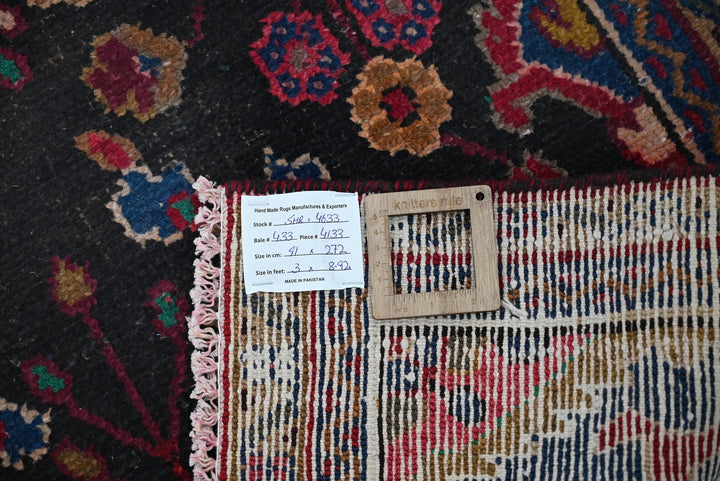 Hand Made Rugs Manufactures & Exporters
Stock # SHR - 4633
Bale # 433 Piece # 4133
Size in cm: 91 x 272
Size in feet: 3 x 8.92
MADE IN PAKISTAN
knitters rule